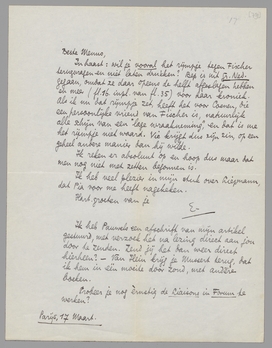 Beste Menno,
In haast: wil je vooral het rijmpje tegen Fischer
terugvragen en niet laten drukken? Rep is uit Gr. Ned.
gegaan, omdat ze daar opeens de helft afhandelen hebben
en meer (fl. 16. inpl. van fl. 35) voor haar kroniek.
Als ik nu dat rijmpje zet, heeft het voor Coenen, die
een persoonlijke vriend van Fischer is, natuurlijk
alle schijn van een "lage wraakneming", en dat is me
het rijmpje niet waard. Vrij krijgt dus zijn zin op een
geheel andere manier dan hij wilde.
Ik reken er absoluut op en hoop dus maar dat
men nog niet met zetten begonnen is.
Ik heb veel plezier in mijn stuk over
dat Pia voor me heeft nagekeken.
Hart. groeten van je
E.
Ik heb Pauwels een afschrift van mijn artikel
gestuurd, met verzoek het na lezing direct aan jou
door te zenden. Zend jij het dan weer direct
hierheen? – Van Klein krijg je Musert terug, dat
ik hem in een moeite door zond, met andere
boeken.
Probeer je nog ernstig de Liaisons in Forum te
werken?
Parijs, 17 Maart.